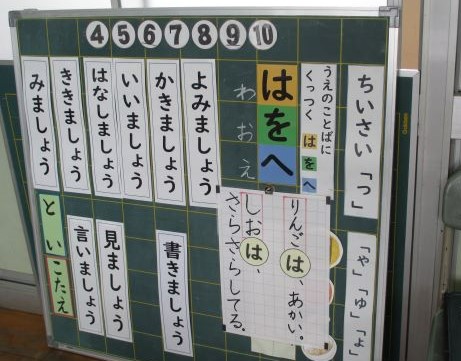 ④⑤⑥⑦⑧⑨⑩
ちいさい「っ」
「や」「ゆ」「ょ」
うえのことばに
くっつく はをへ
はをへ
わおえ
りんごは、あかい。
しおは、
さらさらしてる。
よみましょう
かきましょう
いいましょう
はなしましょう
ききましょう
みましょう
書きましょう
見ましょう
言いましょう
とい
こたえ